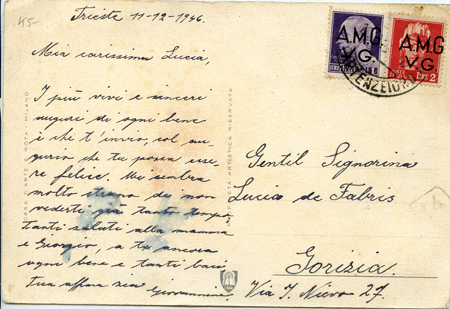 K5-
Trieste 11-12-1946.
Mia carissima Lucia,
I più vivi e sinceri
auguri di ogni bene
è che t'invio, col au-
gurio che tu possa esse-
re felice. Mi sembra
molto strano di non
vederti già tanto tempo,
tanti saluti alla mamma
e Giorgio, a te ancora
ogni bene e tanti baci
tua
Giovannina.
CASA D'ARTE E. ROTA - MILANO
PROPRIETÀ ARTISTICA RISERVATA
A.M.G.
V.G.
A.M.G
V.G.
LIRE 2
Gentil Signorina
Lucia de Fabris
Gorizia.
Via I. Nievo 27.